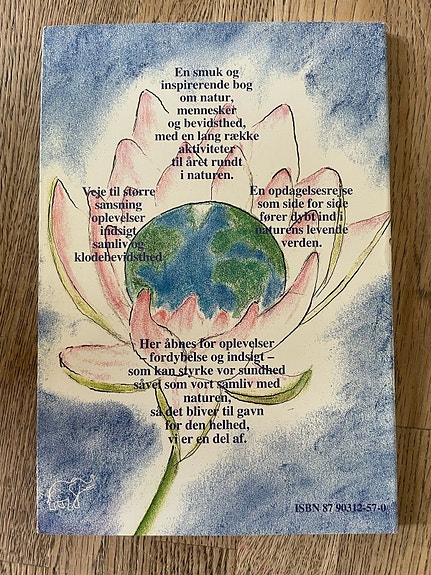 En smuk og
inspirerende bog
om natur,
mennesker
og bevidsthed,
med en lang række
aktiviteter
til året rundt
i naturen.
Veje til større
sansning
oplevelser
indsigt
samliv og
klodebevidsthed
En opdagelsesrejse
som side for side
fører dybt ind i
naturens levende
verden.
Her åbnes for oplevelser
– fordybelse og indsigt –
som kan styrke vor sundhed
såvel som vort samliv med
naturen,
så det bliver til gavn
for den helhed,
vi er en del af.
ISBN 87 90312-57-0